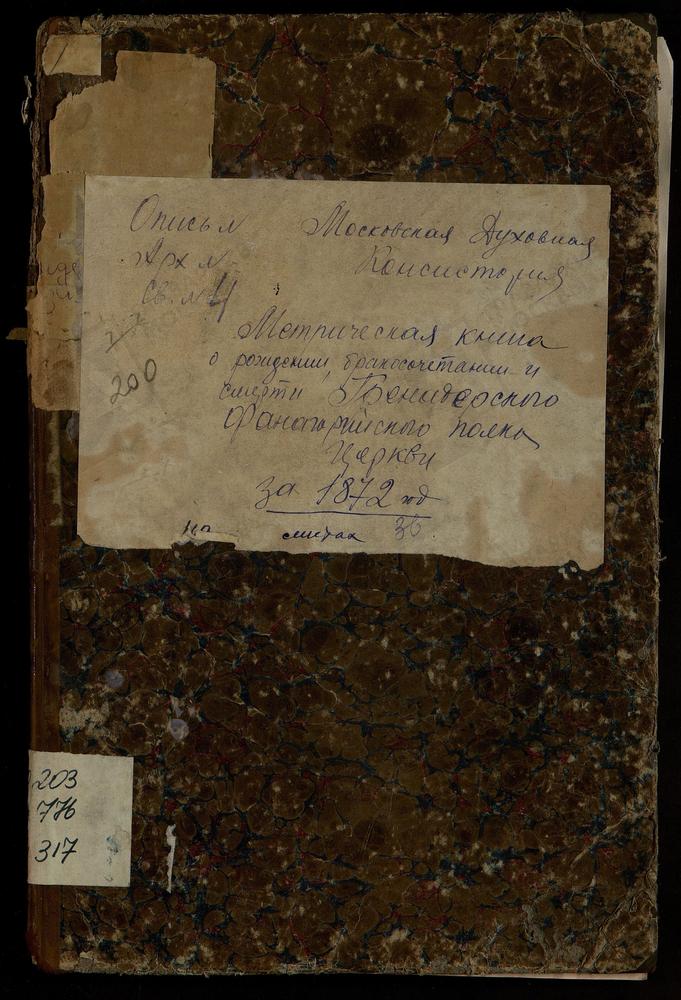 Опись №
Московская Духовная
Арх №
Консистория
Св. № 4
Метрическая книга
о рождении, бракосочетании и
смерти Гренадерского
Фанагорийского полка
Церкви
за 1872 год
на листах 36
200
203
776
317